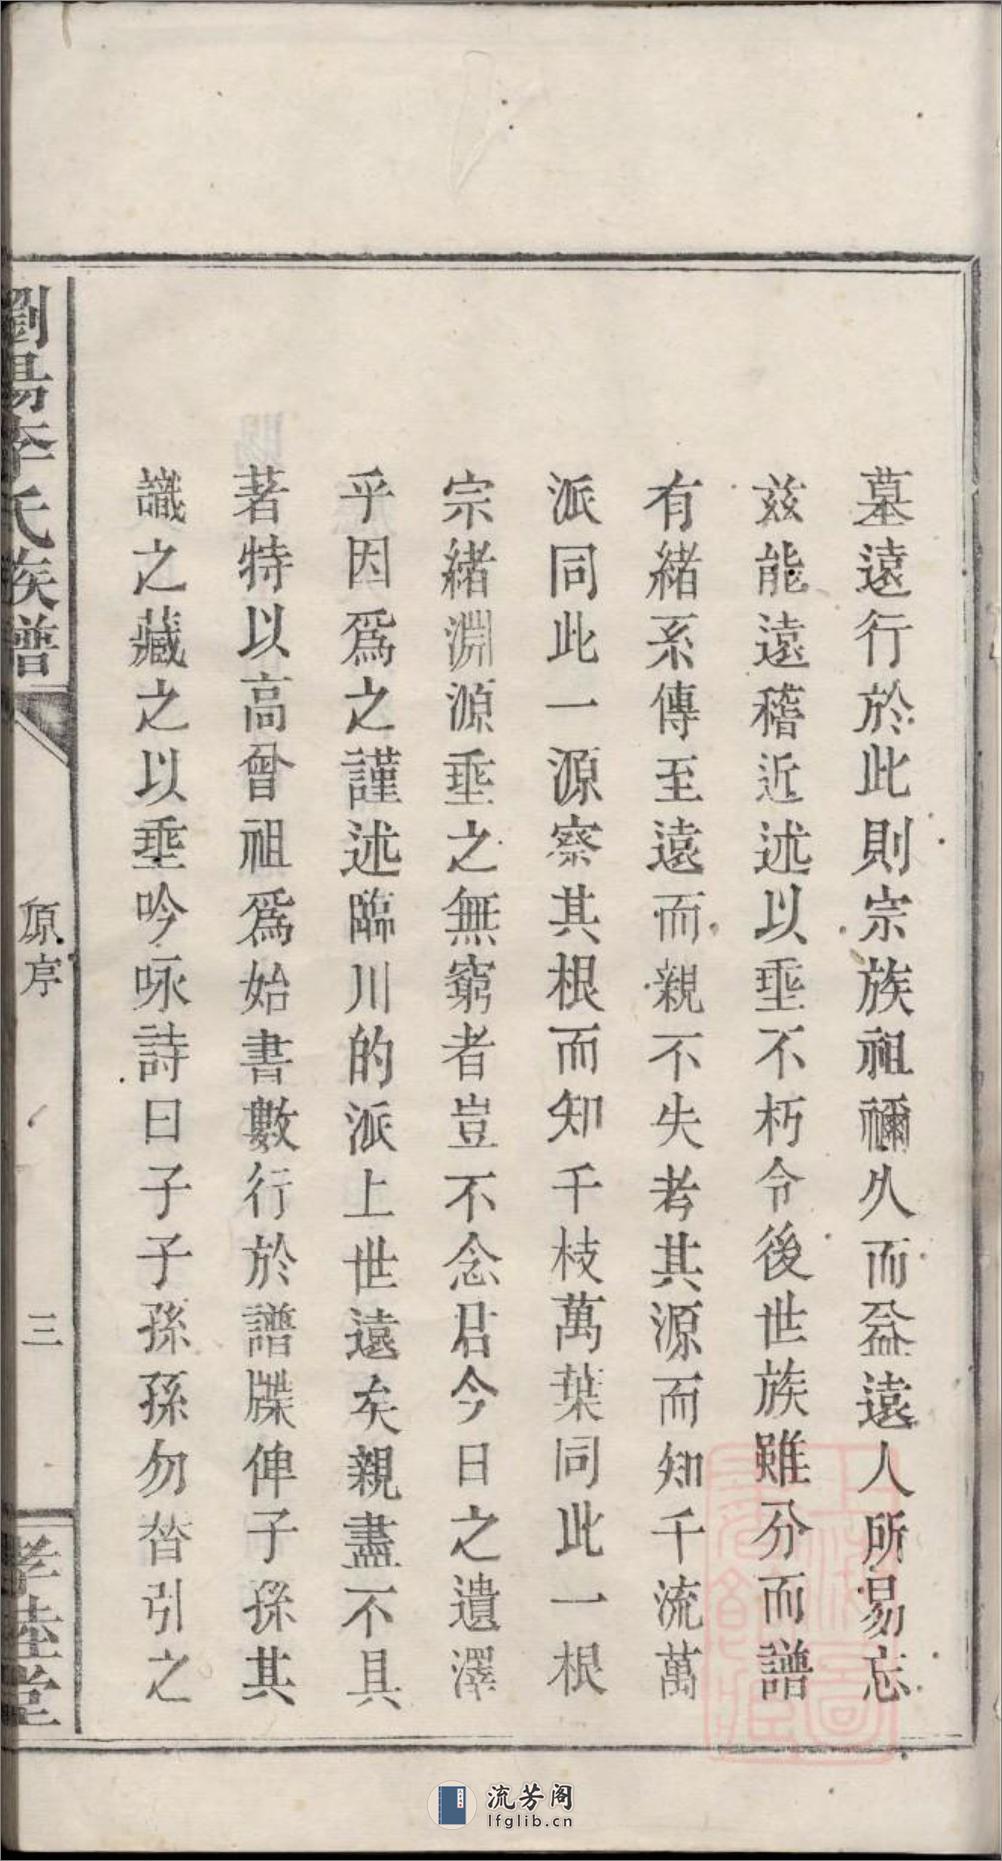 墓遠行於此則宗族祖禰久而益遠人所易忘
茲能遠稽近述以垂不朽令後世族雖分而譜
有緒系傳至遠而親不失考其源而知千流萬
派同此一源察其根而知千枝萬葉同此一根
宗緒淵源垂之無窮者豈不念君今日之遺澤
乎因爲之謹述臨川的派上世遠矣親盡不具
著特以高曾祖爲始書數行於譜牒俾子孫其
識之藏之以垂吟咏詩曰子子孫孫勿替引之
劉陽李氏族譜
原序
三
孝睦堂
流芳阁
lfglib.cn